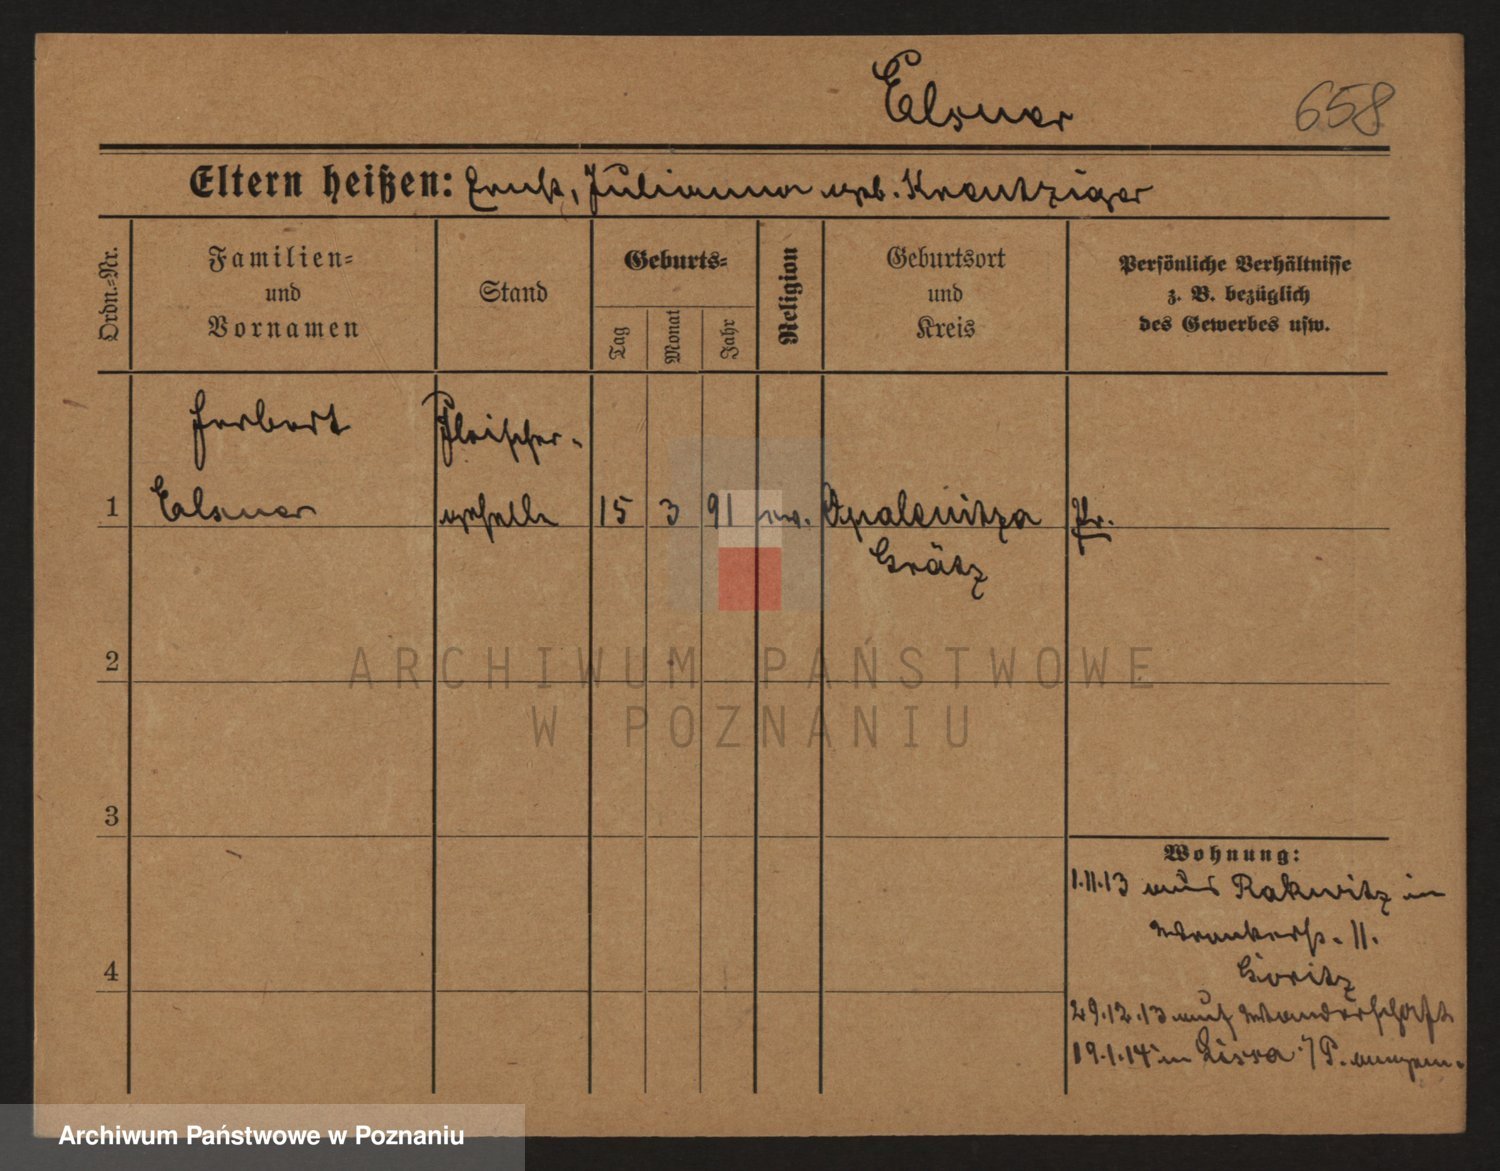 Elsner
658
Eltern heißen: Ernst, Julianna geb. Kreutziger
Ordn.-Nr.
Familien-
und
Vornamen
Stand
Geburts-
Tag
Monat
Jahr
Religion
Geburtsort
und
Kreis
Persönliche Verhältnisse
z. B. bezüglich
des Gewerbes usw.
Herbert
Fleischer-
1 Elsner geselle 15 3 91 ev. Opalenitza Pr.
Grätz
2
3
4
Wohnung:
1.11.13 aus Rakwitz in
11.
Goritz
29.12.13 auf Wanderschaft
19.1.14 in Lissa i/P. angem.
ARCHIWUM PAŃSTWOWE
W POZNANIU
Archiwum Państwowe w Poznaniu